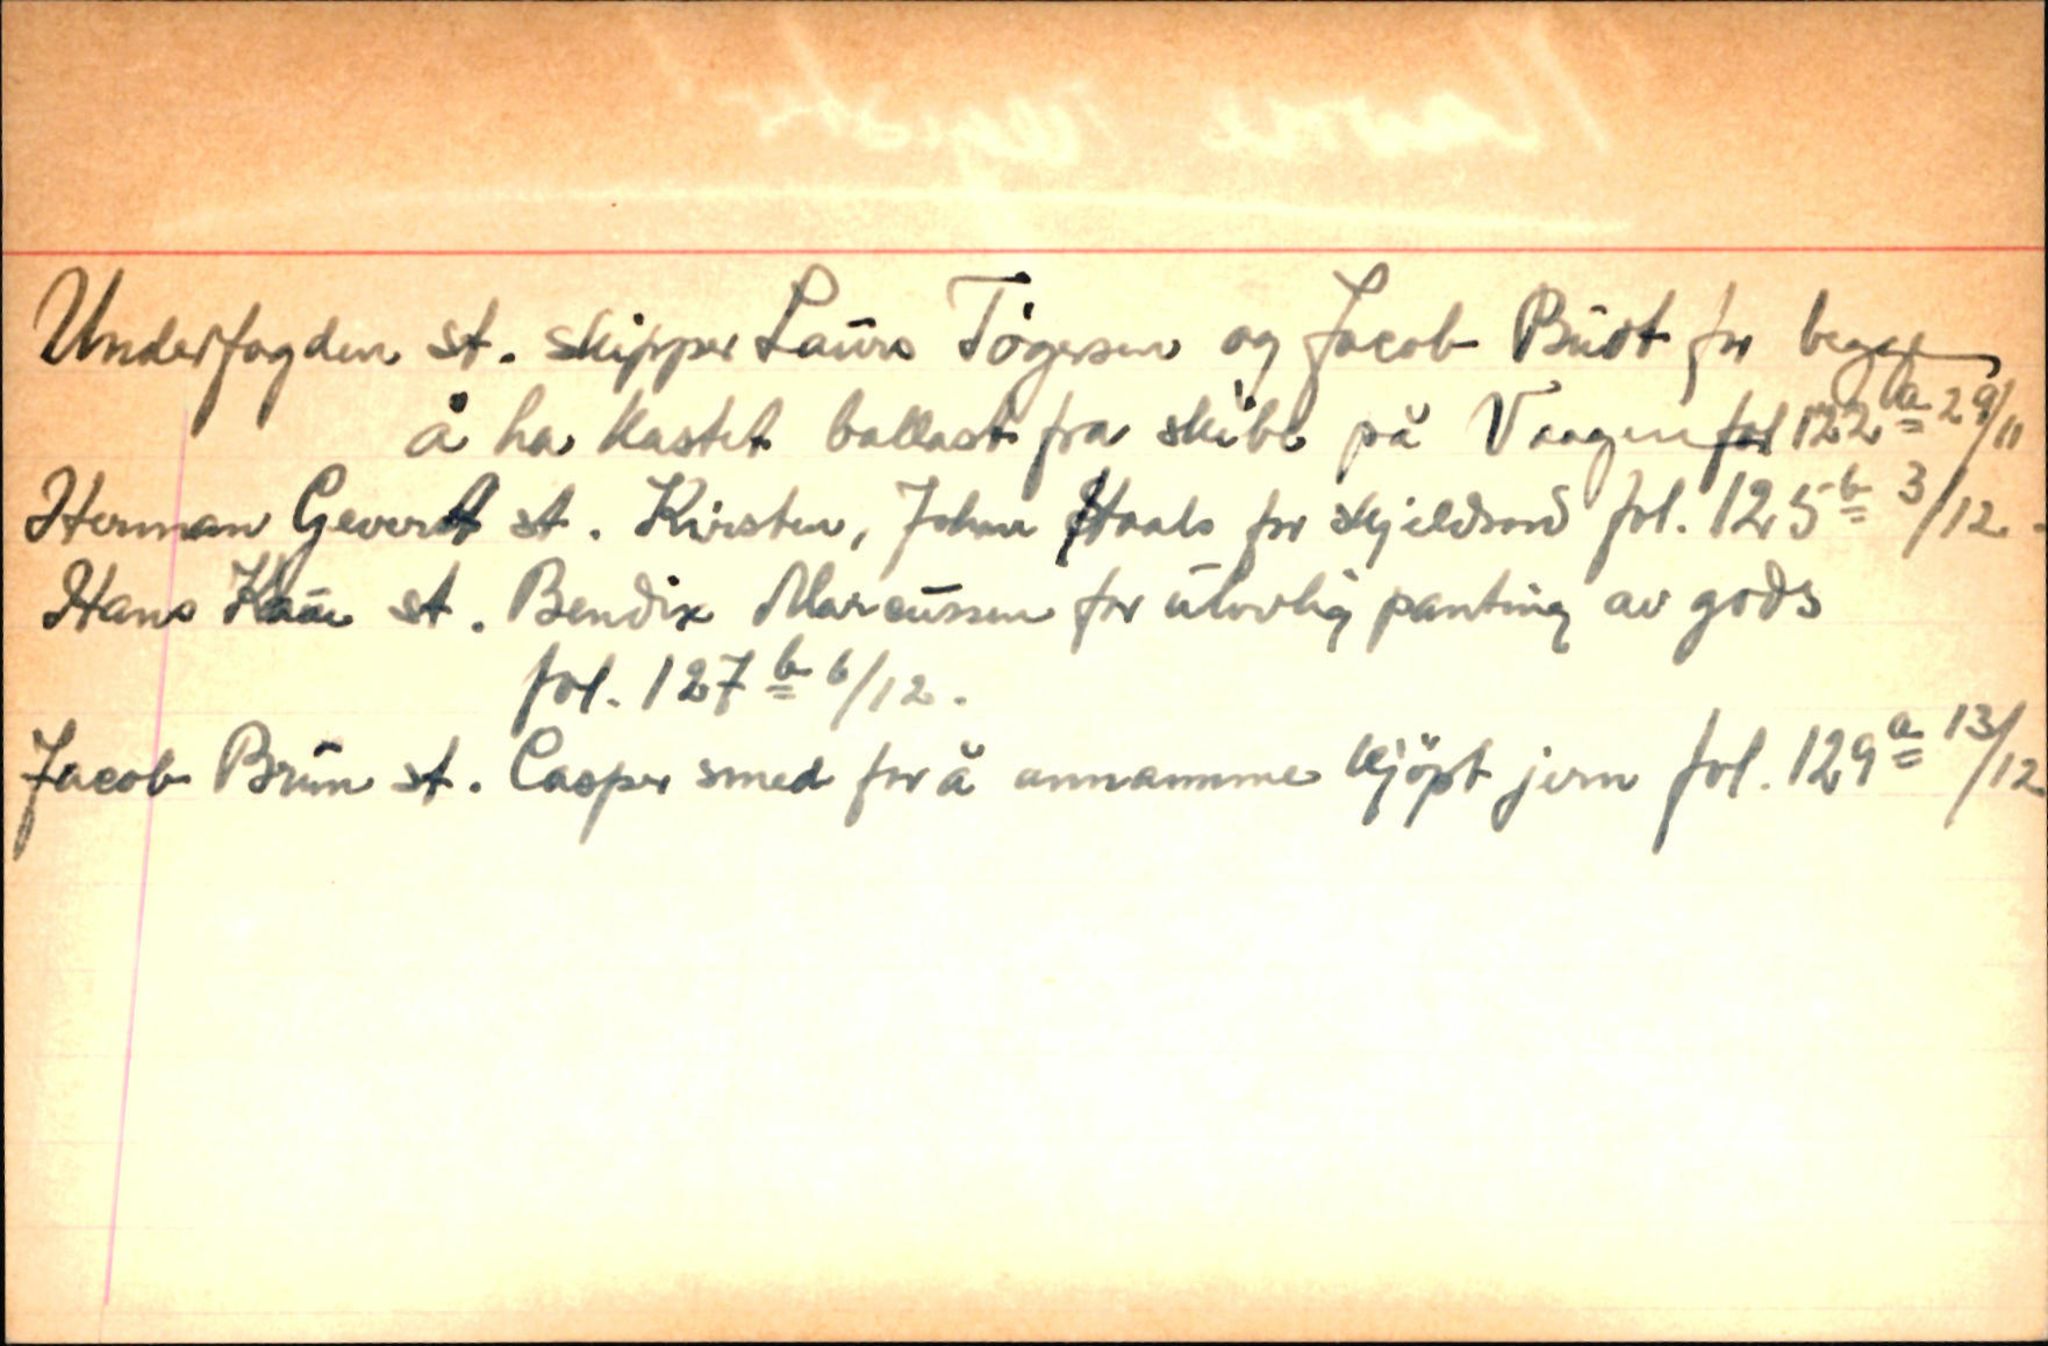 Underfogden st. skipper Laurs Tögersen og Jacob Büst for begge
å ha kastet ballast fra skibe på Vaagen fol 122 a 29/11
Herman Gevert st. Kirsten, John Staals for skjeldsord fol. 125 b 3/12.
Hans st. Bendix Marcussen for ulovlig panting av gods
fol. 127 b 6/12.
Jacob Brun st. Casper smed for å annamme kjöpt jern fol. 129 a 13/12